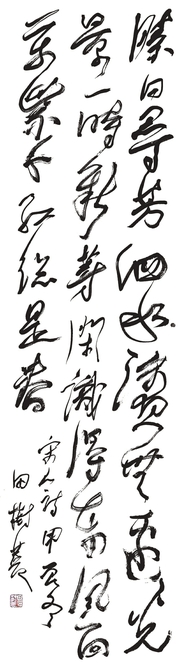 勝日尋芳泗水濱無邊光
景一時新等閒識得東風面
萬紫千紅總是春
宋人詩甲辰
田樹萇